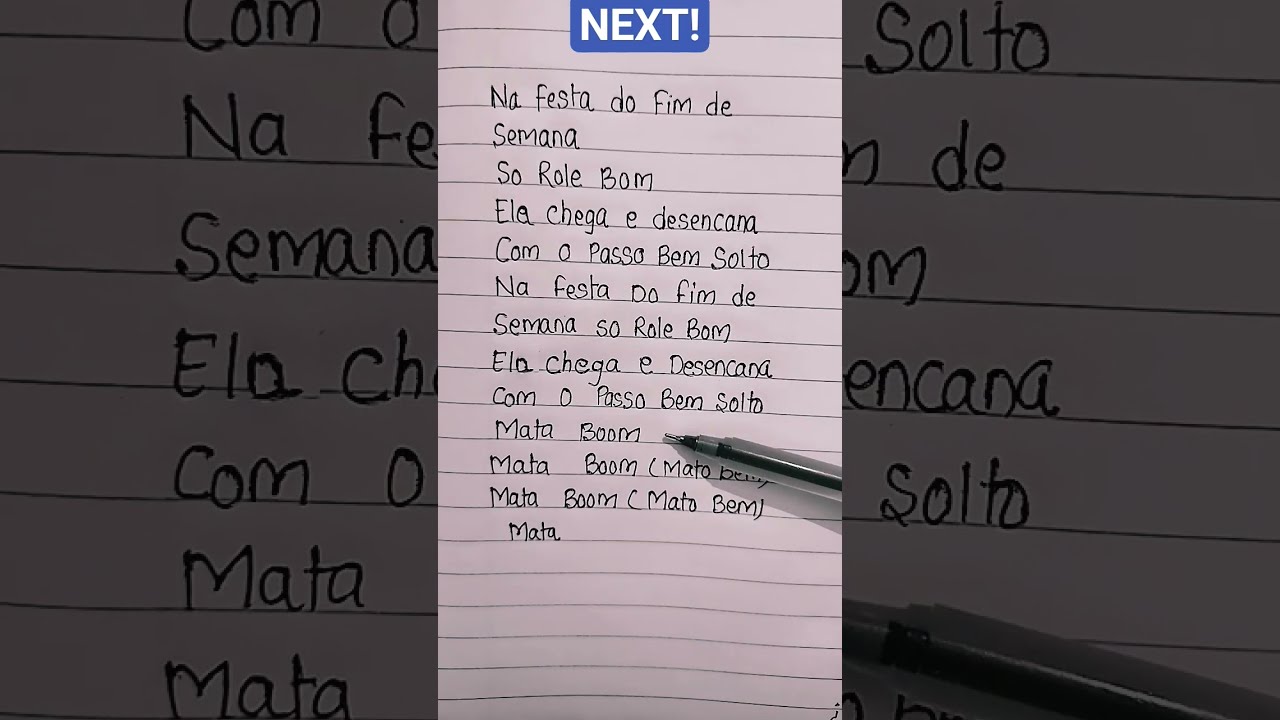 NEXT!
Na festa do fim de
Semana
So Role Bom
Ela chega e desencana
Com o Passo Bem Solto
Na festa Do fim de
Semana so Role Bom
Ela chega e Desencana
Com o Passo Bem Solto
Mata Boom
Mata Boom (Mato Bem)
Mata Boom (Mato Bem)
Mata